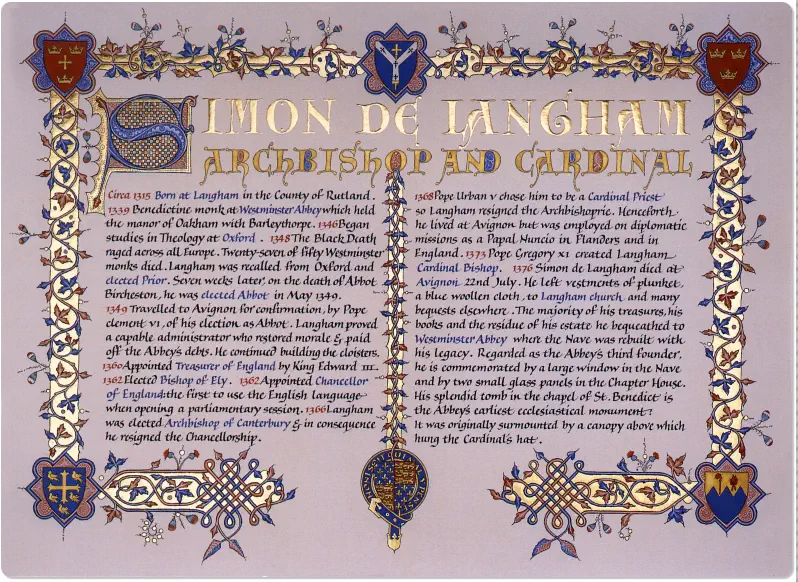 SIMON DE LANGHAM
ARCHBISHOP AND CARDINAL
Circa 1315 Born at Langham in the County of Rutland.
1339 Benedictine monk at Westminster Abbey which held
the manor of Oakham with Barleythorpe. 1346 Began
studies in Theology at Oxford. 1348 The Black Death
raged across all Europe. Twenty-seven of fifty Westminster
monks died. Langham was recalled from Oxford and
elected Prior. Seven weeks later, on the death of Abbot
Bircheston, he was elected Abbot in May 1349.
1349 Travelled to Avignon for confirmation, by Pope
Clement VI, of his election as Abbot. Langham proved
a capable administrator who restored morale & paid
off the Abbey's debts. He continued building the cloisters.
1360 Appointed Treasurer of England by King Edward III.
1362 Elected Bishop of Ely. 1362 Appointed Chancellor
of England: the first to use the English language
when opening a parliamentary session. 1366 Langham
was elected Archbishop of Canterbury & in consequence
he resigned the Chancellorship.
1368 Pope Urban V chose him to be a Cardinal Priest
so Langham resigned the Archbishopric. Henceforth
he lived at Avignon but was employed on diplomatic
missions as a Papal Nuncio in Flanders and in
England. 1373 Pope Gregory XI created Langham
Cardinal Bishop. 1376 Simon de Langham died at
Avignon 22nd July. He left vestments of plunket,
a blue woollen cloth, to Langham church and many
bequests elsewhere. The majority of his treasures, his
books and the residue of his estate he bequeathed to
Westminster Abbey where the Nave was rebuilt with
his legacy. Regarded as the Abbey's third founder,
he is commemorated by a large window in the Nave
and by two small glass panels in the Chapter House.
His splendid tomb in the chapel of St. Benedict is
the Abbey's earliest ecclesiastical monument.
It was originally surmounted by a canopy above which
hung the Cardinal's hat.